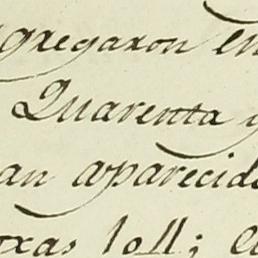 gregaron en
Quarenta y
an aparecid
xas 1011; e